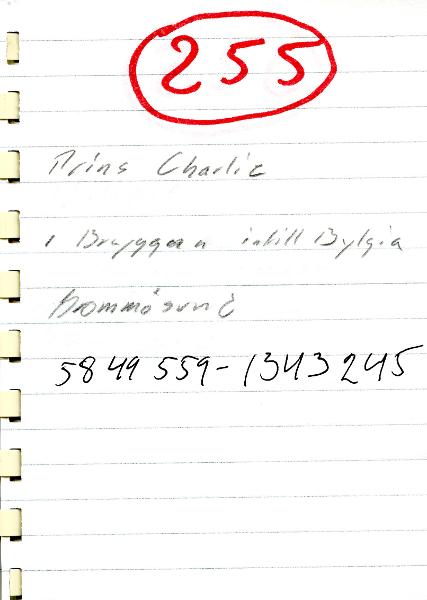 255
Prins Charlie
i Bryggan intill Bylgia
Dommösund
5849559-1343245